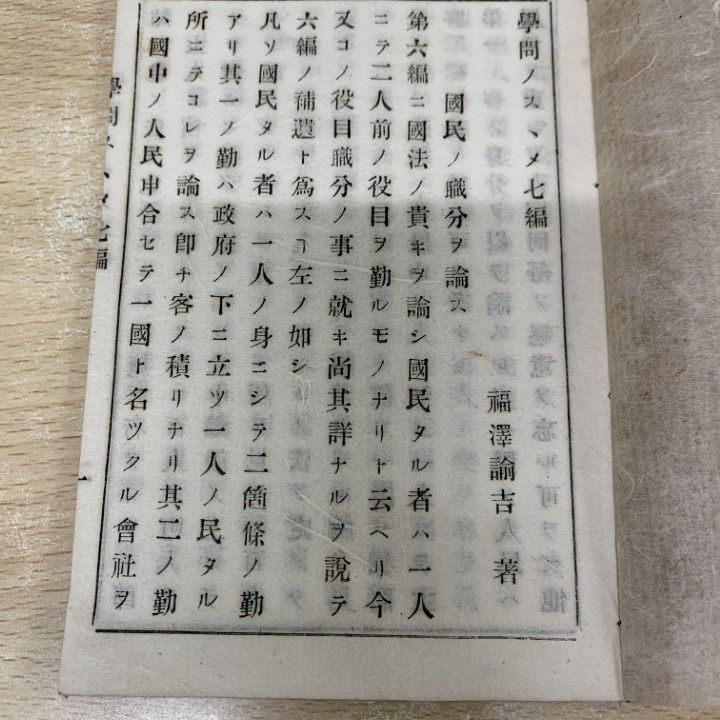 學問ノスヽメ七編
福澤諭吉 著
國民ノ職分ヲ論ス
第六編ニ國法ノ貴キヲ論シ國民タル者ハ一人
ニテ二人前ノ役目ヲ勤ルモノナリト云ヘリ今
又コノ役目職分ノ事ニ就キ尚其詳ナルヲ說テ
六編ノ補遺ト爲スヿ左ノ如シ
凡ソ國民タル者ハ一人ノ身ニシテ二箇條ノ勤
アリ其一ノ勤ハ政府ノ下ニ立ツ一人ノ民タル
所ニテコレヲ論ス卽チ客ノ積リナリ其二ノ勤
ハ國中ノ人民申合セテ一國ト名ツクル會社ヲ
學問ノスヽメ七編
一